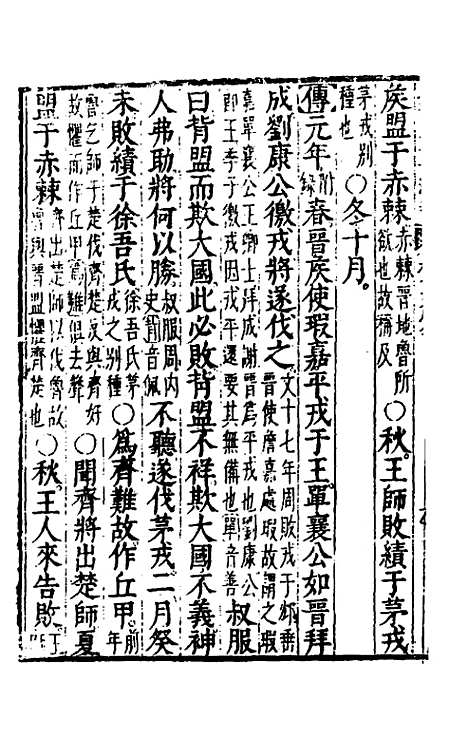 矦盟于赤棘赤棘晉地魯所欲也故稱及○秋王師敗績于茅戎
茅戎別種也○冬十月。
傳元年附錄春晉矦使瑕嘉平戎于王單襄公如晉拜
成劉康公徼戎將遂伐之文十七年周敗戎于邥垂晉使詹嘉處瑕故謂之瑕
嘉單襄公王卿士拜成謝晉爲平戎也劉康公即王季子徼戎因戎平還要其無備也單音善叔服
曰背盟而欺大國此必敗背盟不祥欺大國不義神
人弗助將何以勝叔服周内史背音佩不聽遂伐茅戎二月癸
未敗績于徐吾氏徐吾氏茅戎之別種○爲齊難故作丘甲。前年
魯乞師于楚伐與齊好故懼而作丘甲爲難俱去聲○聞齊將出楚師夏
盟于赤棘齊出楚師以伐魯故魯與晉盟懼齊楚也○秋王人來告敗